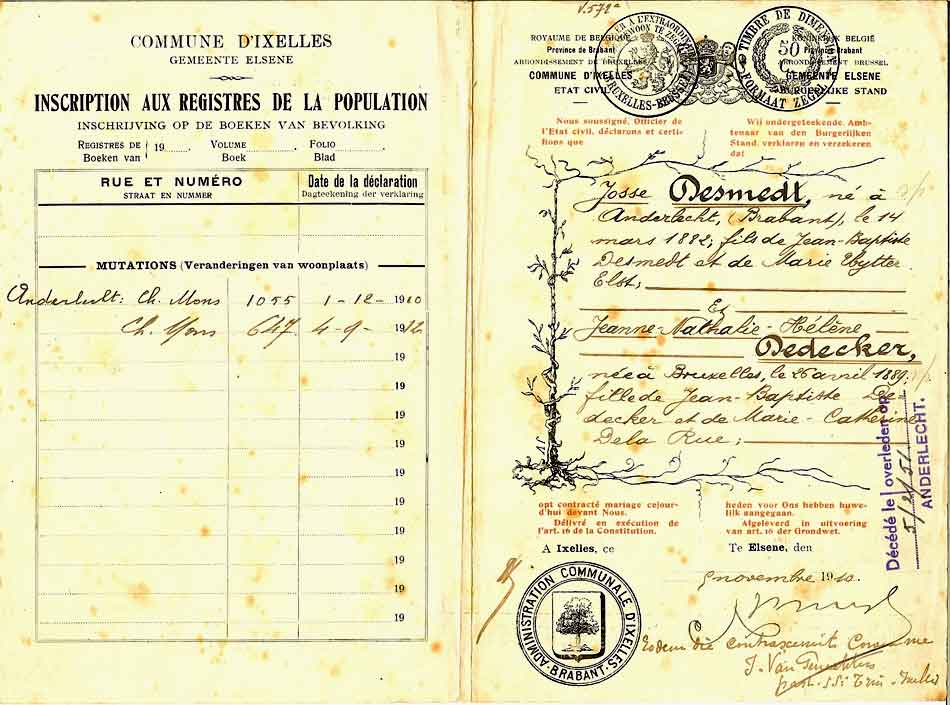 COMMUNE D'IXELLES
GEMEENTE ELSENE
INSCRIPTION AUX REGISTRES DE LA POPULATION
INSCHRIJVING OP DE BOEKEN VAN BEVOLKING
REGISTRES DE 19 VOLUME FOLIO
Boeken van Boek Blad
RUE ET NUMÉRO Date de la déclaration
STRAAT EN NUMMER Dagteekening der verklaring
MUTATIONS (Veranderingen van woonplaats)
Ch. Mons 1055 1-12-1910
Ch. Mons 647 4-9-1912
19
19
19
19
19
19
19
19
19
19
V.572
ROYAUME DE BELGIQUE KONINKRIJK BELGIË
Province de Brabant Provincie Brabant
ARRONDISSEMENT DE BRUXELLES ARRONDISSEMENT BRUSSEL
COMMUNE D'IXELLES GEMEENTE ELSENE
ETAT CIVIL BURGERLIJKE STAND
TIMBRE DE DIMENSION
50
FORMAAT ZEGEL
Nous soussigné, Officier de
l'Etat civil, déclarons et certi-
fions que
Wij ondergeteekende, Amb-
tenaar van den Burgerlijken
Stand, verklaren en verzekeren
dat
Josse Desmedt, né à
Anderlecht, (Brabant), le 14
mars 1882; fils de Jean-Baptiste
Desmedt et de Marie Uytter
Elst;
Et
Jeanne-Nathalie-Hélène
Dedecker,
née à Bruxelles, le 26 avril 1889;
fille de Jean-Baptiste De-
decker et de Marie-Catherine
Dela Rue;
Décédé le overleden op
5/2/51
ANDERLECHT.
opt contracté mariage cejour-
d'hui devant Nous.
Délivré en exécution de
l'art. 16 de la Constitution.
heden voor Ons hebben huwe-
lijk aangegaan.
Afgeleverd in uitvoering
van art. 16 der Grondwet.
A Ixelles, ce Te Elsene, den
novembre 1910.
ADMINISTRATION COMMUNALE D'IXELLES
BRABANT
Eodem die